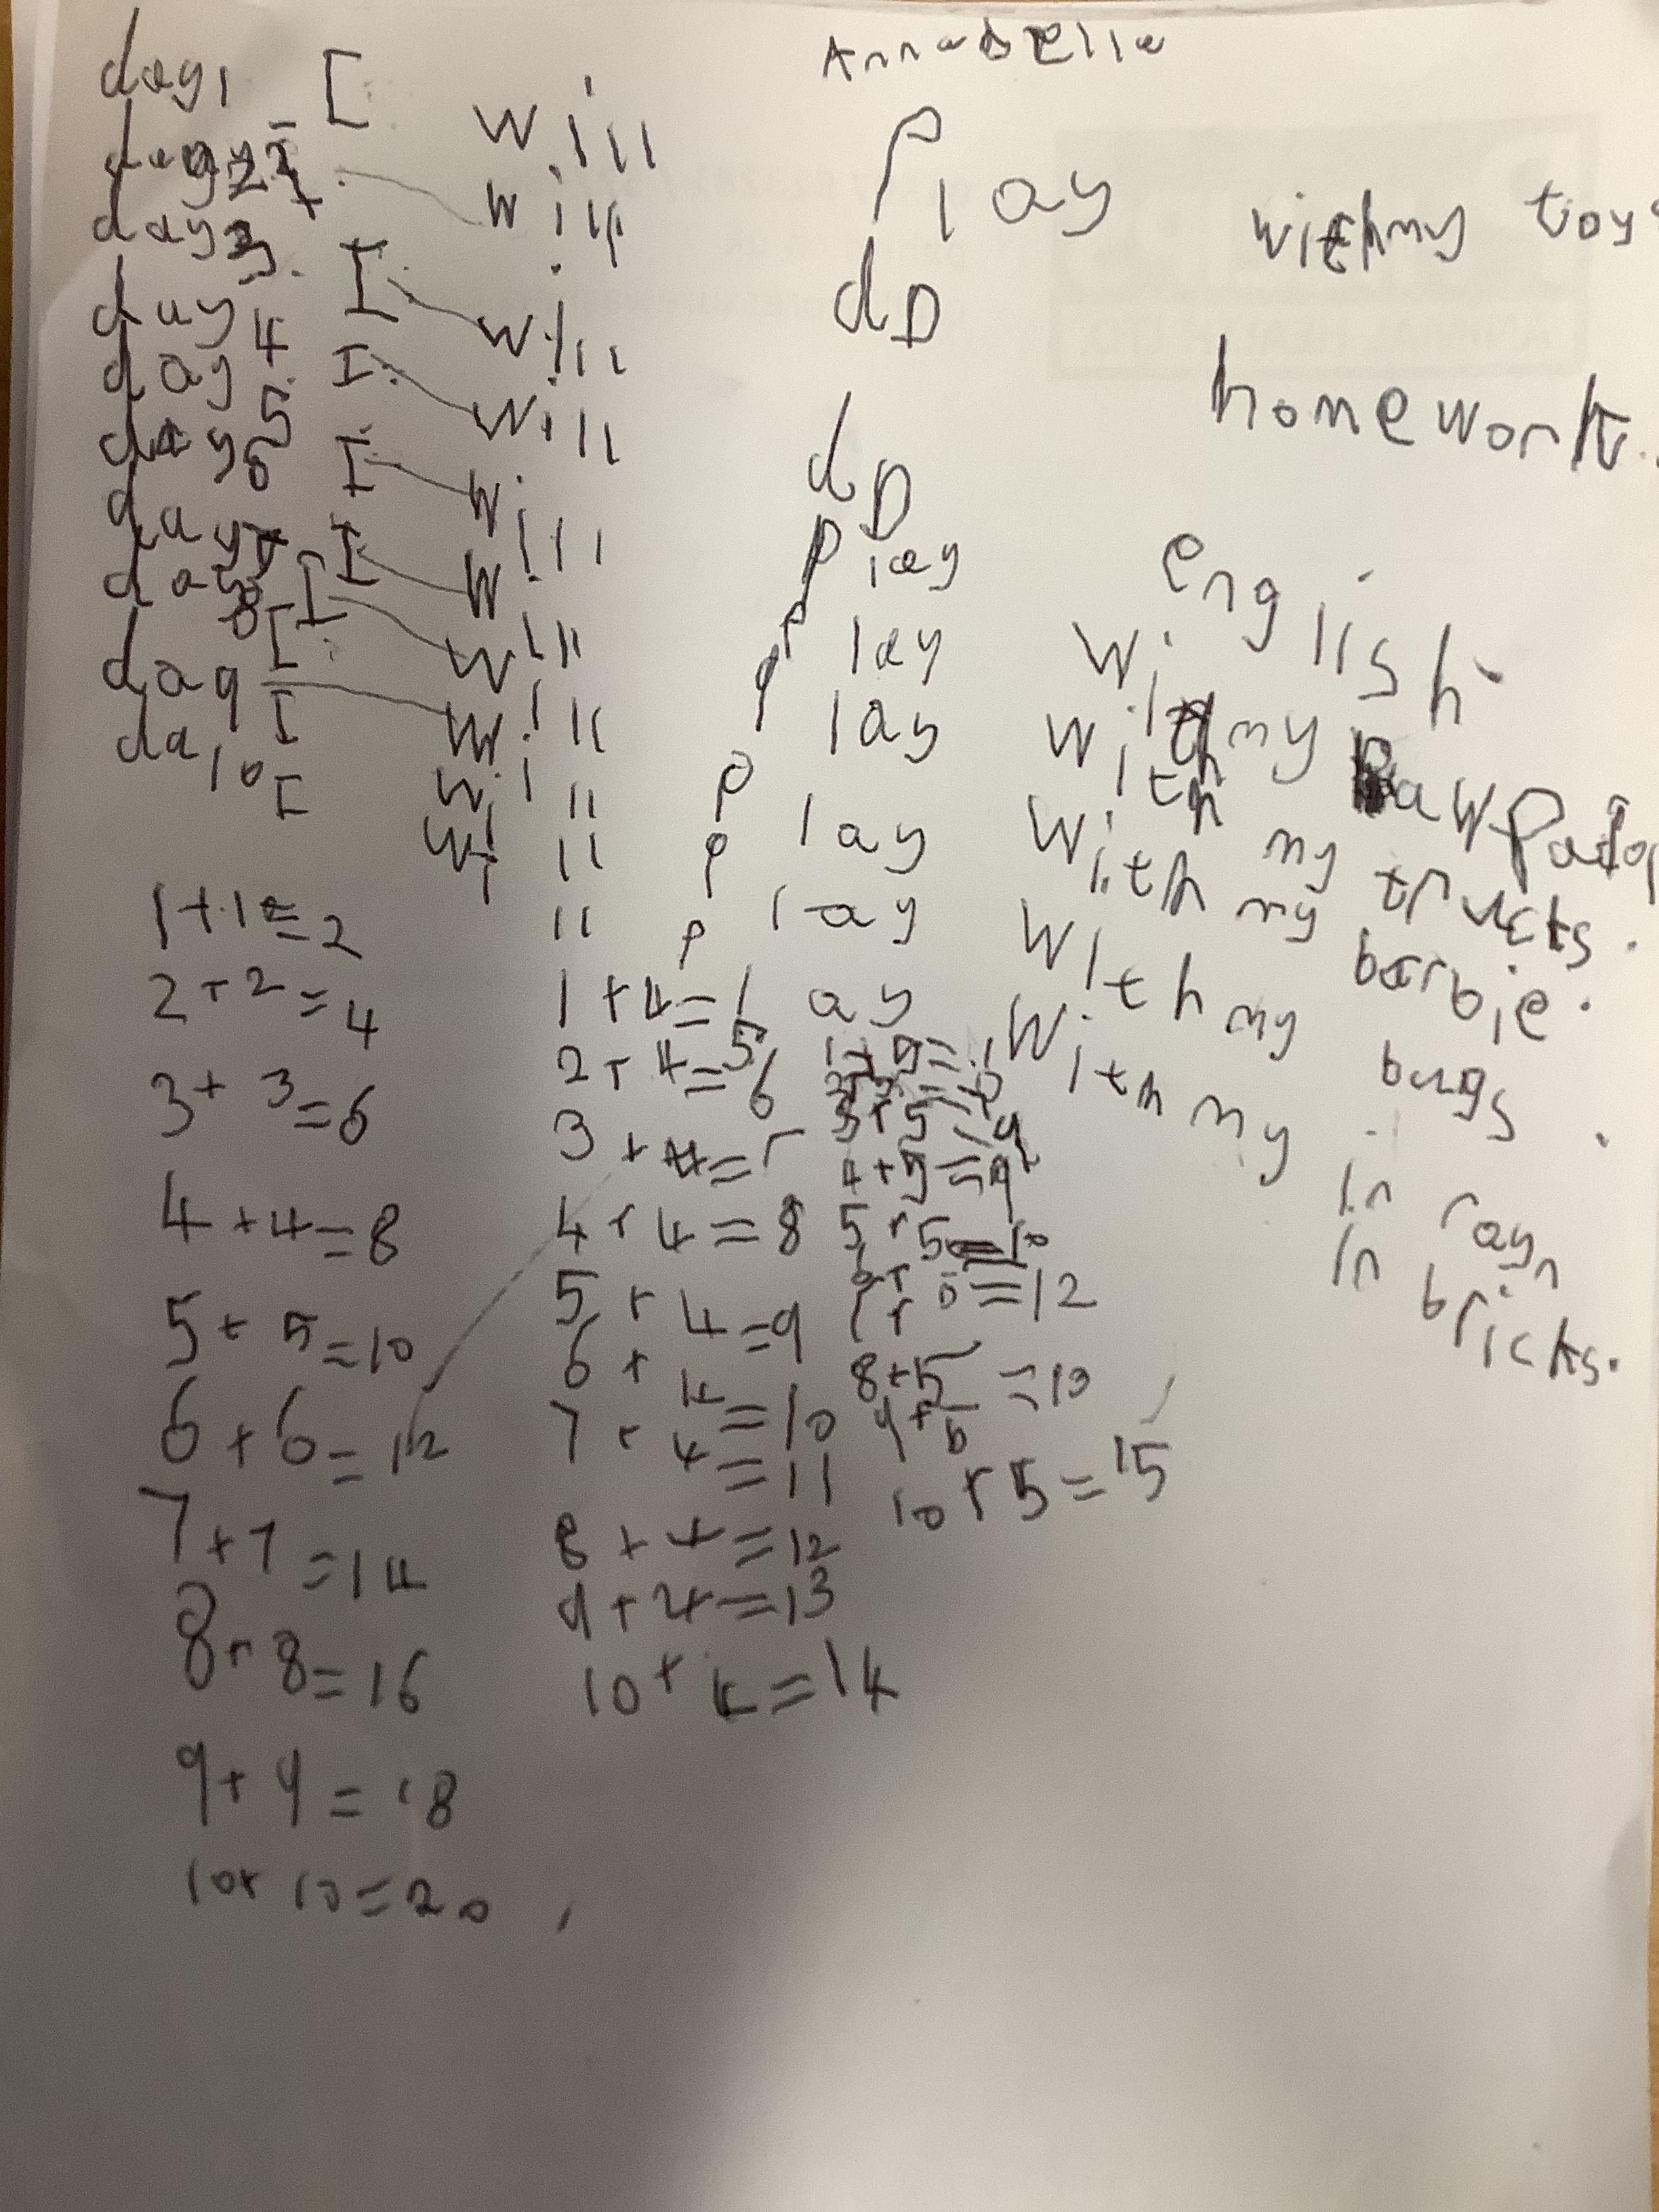 Annabelle
day1 I will play with my toys
day2 I will do homework.
day3 I will do english.
day4 I will play with my
day5 I will play with my trucks.
day6 I will play with my barbie.
day7 I will play with my bugs.
day8 I will play with my
da9 I will play
da10 I will
in rayn
in bricks.
1+1=2
2+2=4
3+3=6
4+4=8
5+5=10
6+6=12
7+7=14
8+8=16
9+9=18
10+10=20
1+4=5
2+4=6
3+4=7
4+4=8
5+4=9
6+4=10
7+4=11
8+4=12
9+4=13
10+4=14
3+5
4+5=9
5+5=10
=12
8+5=10
10+5=15